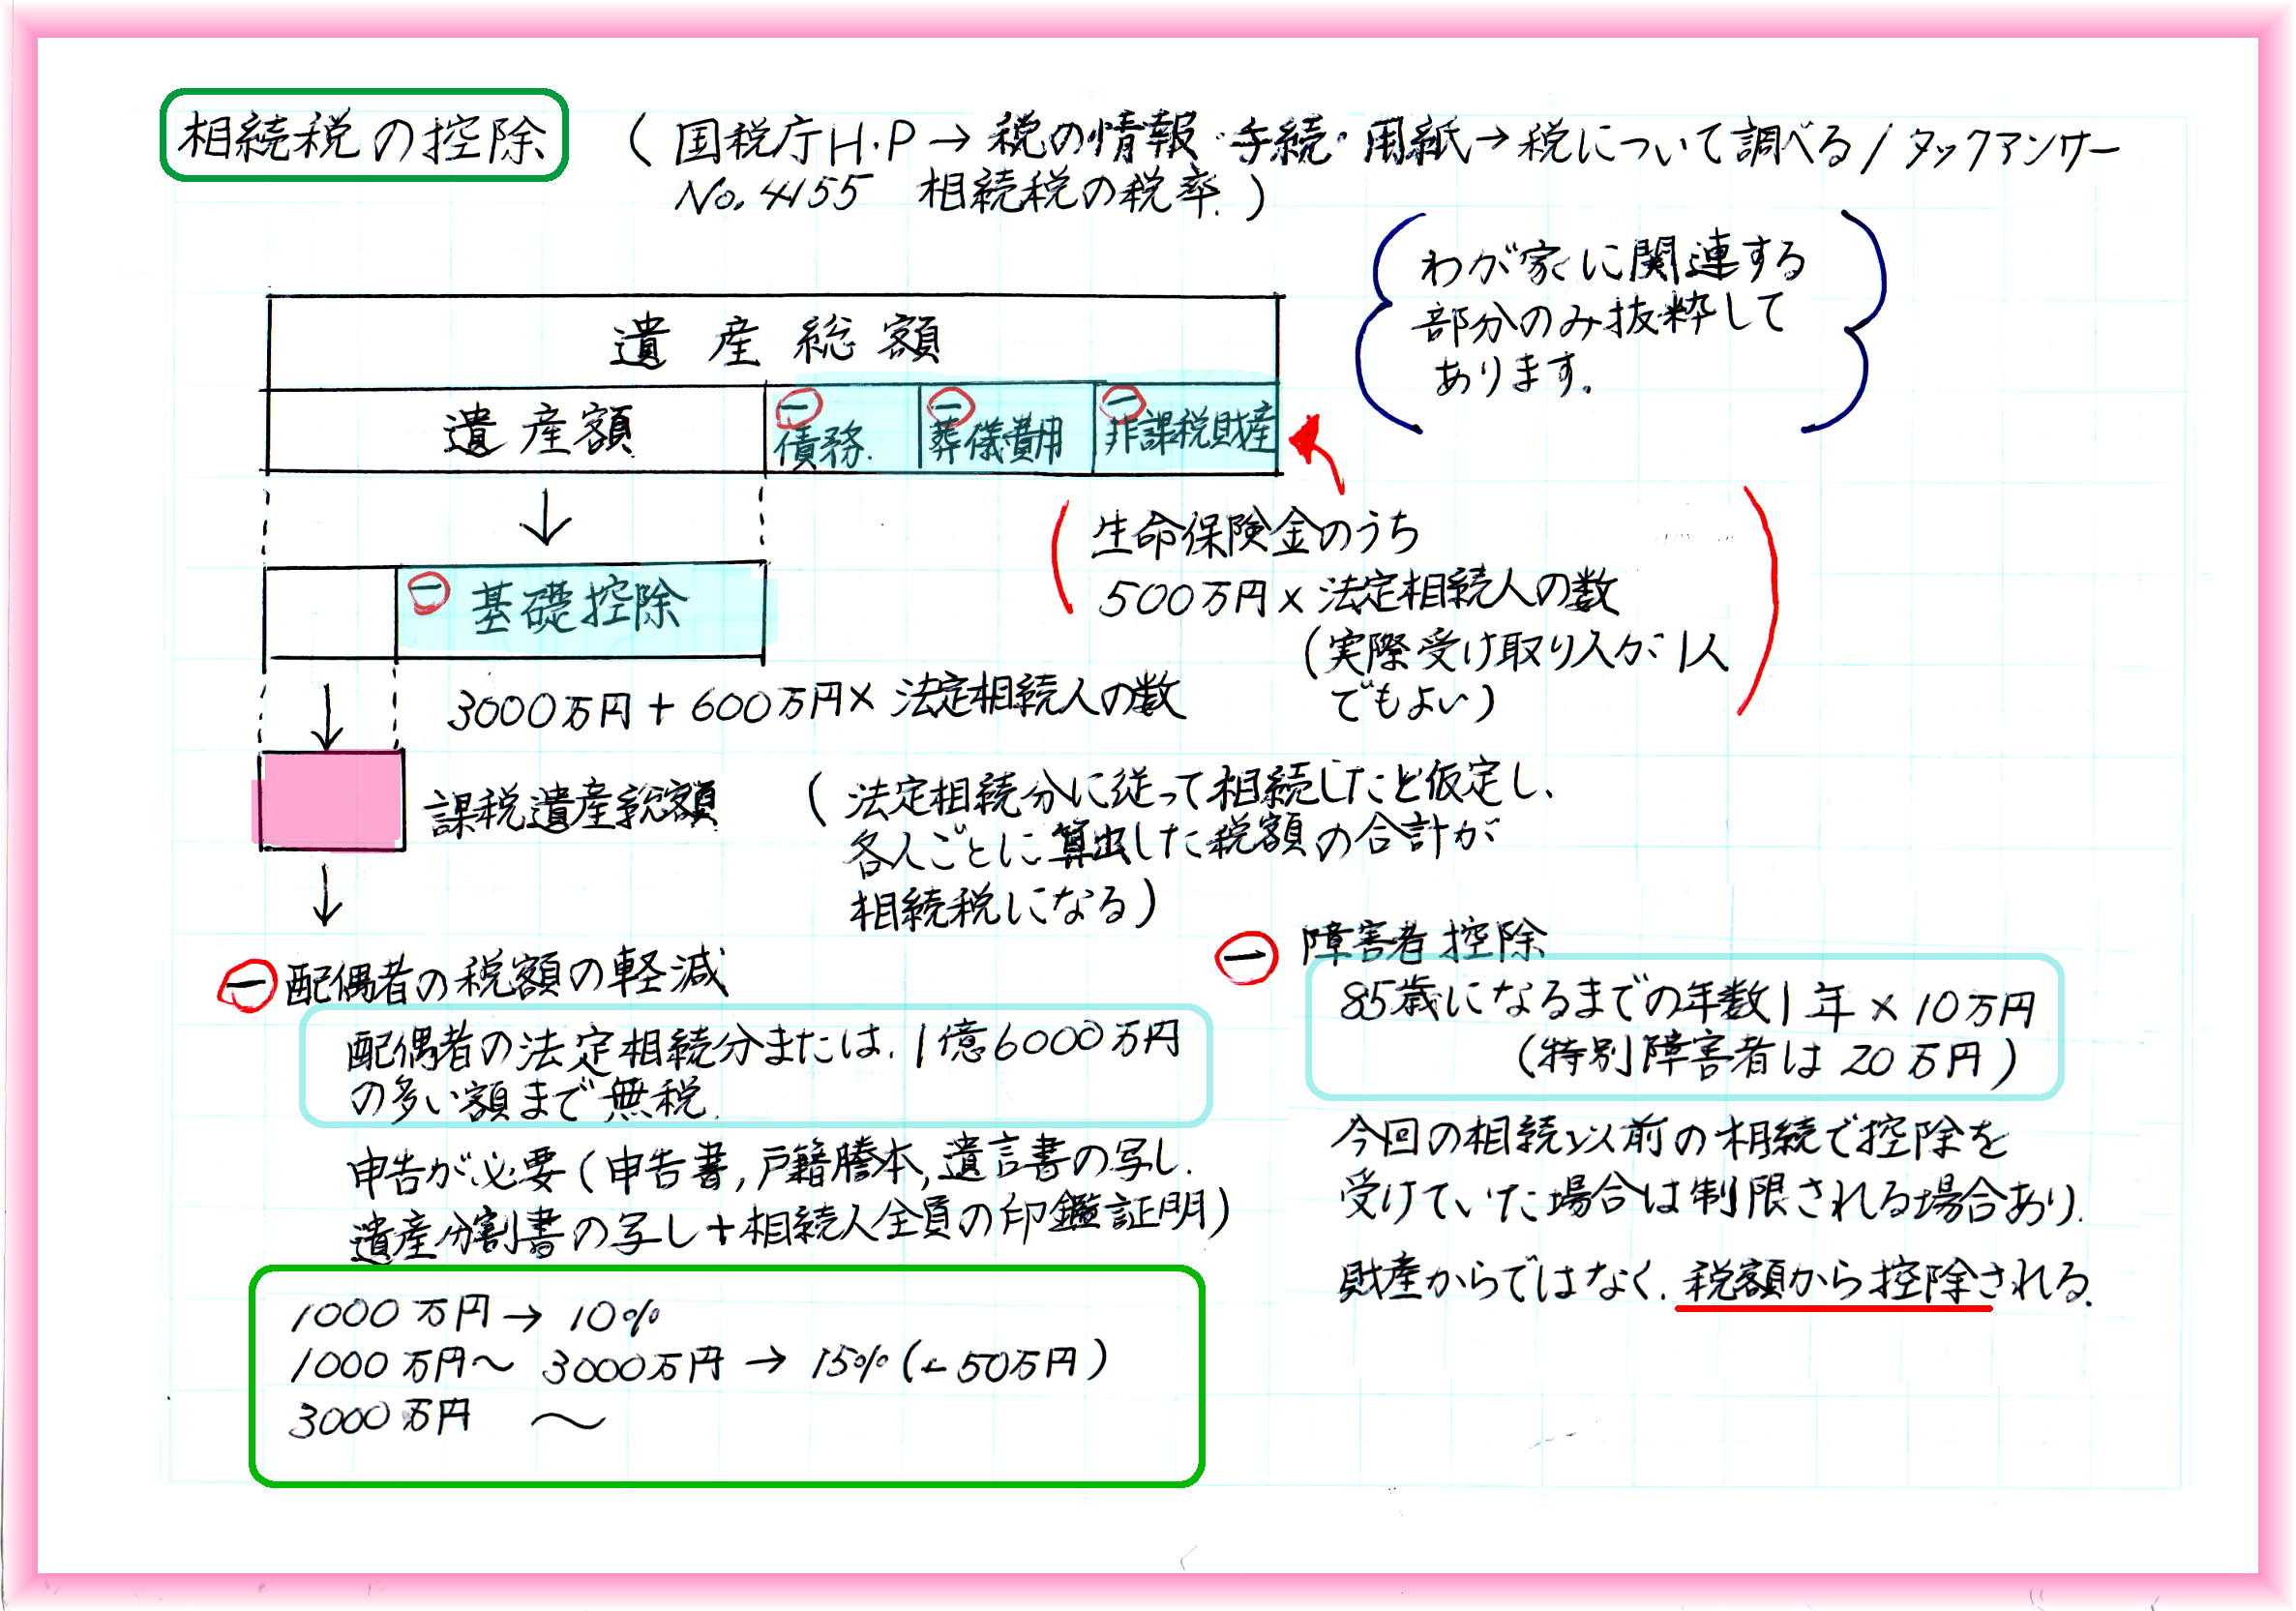 相続税の控除 (国税庁H.P→税の情報・手続・用紙→税について調べる/タックアンサー
No.4155 相続税の税率.)
わが家に関連する
部分のみ抜粋して
あります。
遺産総額
遺産額 ㊀債務. ㊀葬儀費用 ㊀非課税財産
生命保険金のうち
500万円×法定相続人の数
(実際受け取り人が1人
でもよい)
㊀基礎控除
3000万円+600万円×法定相続人の数
課税遺産総額
(法定相続分に従って相続したと仮定し、
各人ごとに算出した税額の合計が
相続税になる)
㊀配偶者の税額の軽減
配偶者の法定相続分または.1億6000万円
の多い額まで無税.
申告が必要(申告書,戸籍謄本,遺言書の写し.
遺産分割書の写し+相続人全員の印鑑証明)
1000万円→10%
1000万円~3000万円→15%(-50万円)
3000万円 ~
㊀障害者控除
85歳になるまでの年数1年×10万円
(特別障害者は20万円)
今回の相続以前の相続で控除を
受けていた場合は制限される場合あり.
財産からではなく.税額から控除される.